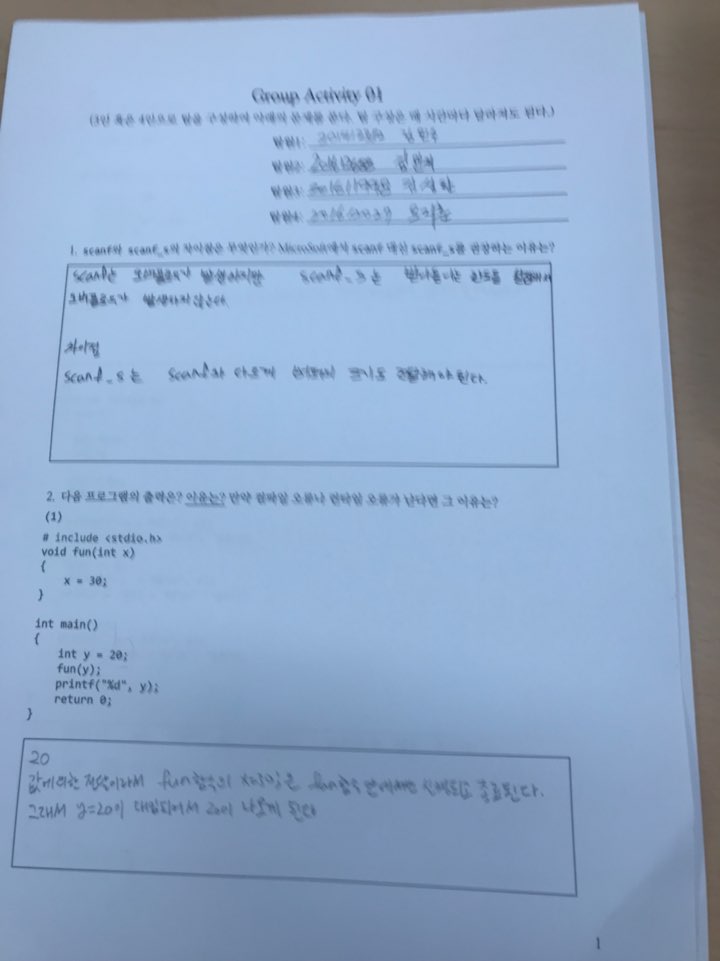 Group Activity 01
(3인 혹은 4인으로 팀을 구성하여 아래의 문제를 푼다. 팀 구성은 매 시간마다 달라져도 된다.)
팀원1:
팀원2:
팀원3:
팀원4:
1. scanf와 scanf_s의 차이점은 무엇인가? MicroSoft에서 scanf 대신 scanf_s를 권장하는 이유는?
scanf는 오버플로우가 발생하지만 scanf_s는 받아들이는
오버플로우가 발생하지 않는다.
차이점
scanf_s는 scanf와 다르게 크기도 전달해야 된다.
2. 다음 프로그램의 출력은? 이유는? 만약 컴파일 오류나 런타임 오류가 난다면 그 이유는?
(1)
# include <stdio.h>
void fun(int x)
{
x = 30;
}
int main()
{
int y = 20;
fun(y);
printf("%d", y);
return 0;
}
20
값에 의한 전달이라서 fun함수의 fun함수 안에서만 종료된다.
그래서 y=20이 대입되어서 20이 나오게 된다
1